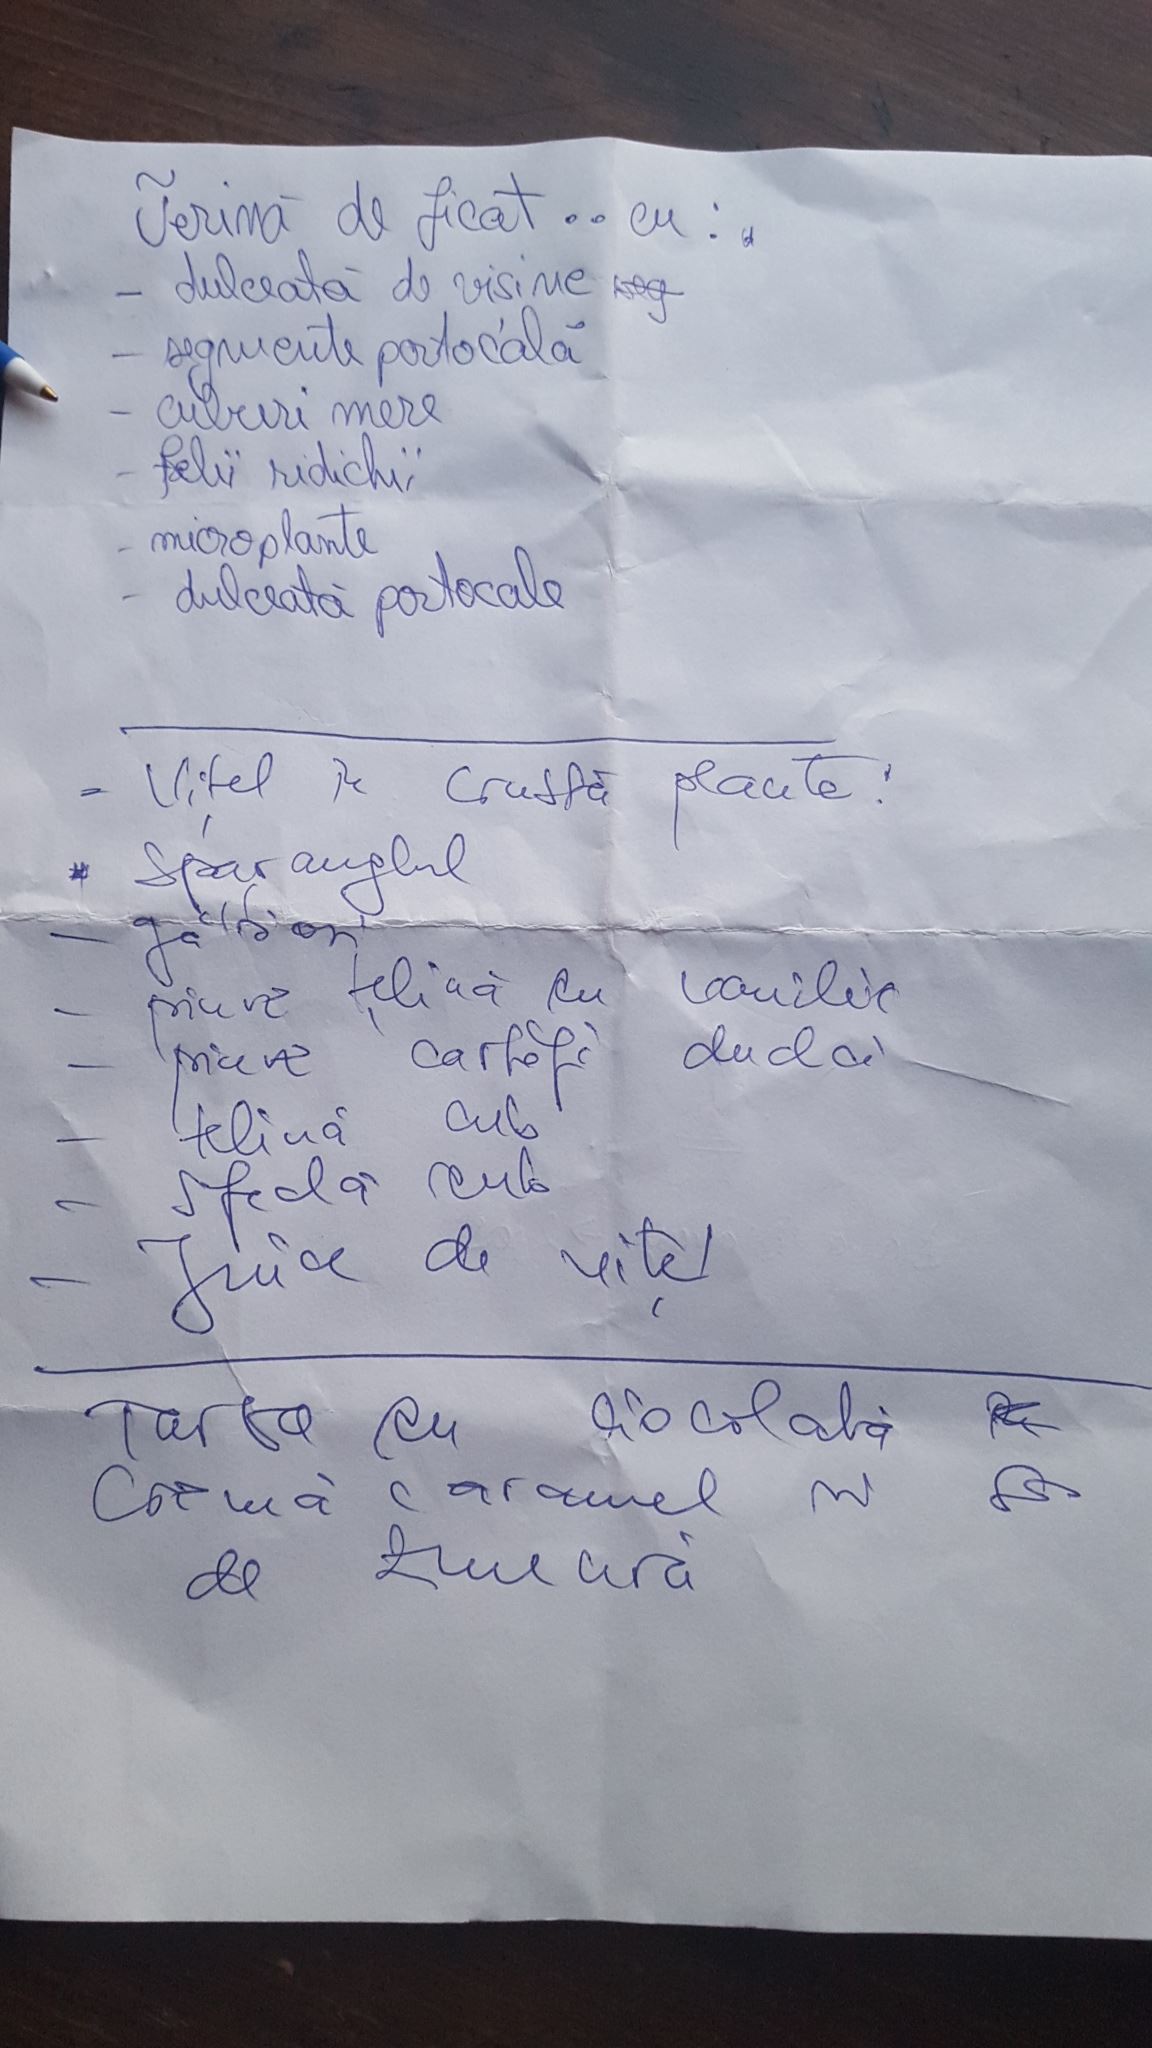 Terină de ficat .. cu :
- dulceată de visine seg
- segmente portocală
- cuburi mere
- felii ridichii
- microplante
- dulceată portocale
- Vițel în crustă plante!
* Sparanghel
- gălbiori
- piure țelină cu vanilie
- piure cartofi dulci
- telină cub
- sfeclă cub
- Juice de vițel
Tarta cu ciocolată
Cremă caramel
de zmeură